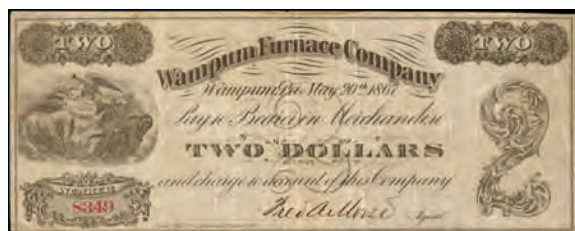 TWO
TWO
Wampum Furnace Company
Wampum Pa. May 20th 1867
Pay to Bearer in Merchandise
TWO DOLLARS
and charge to account of this Company
NUMBER
8349
Agent